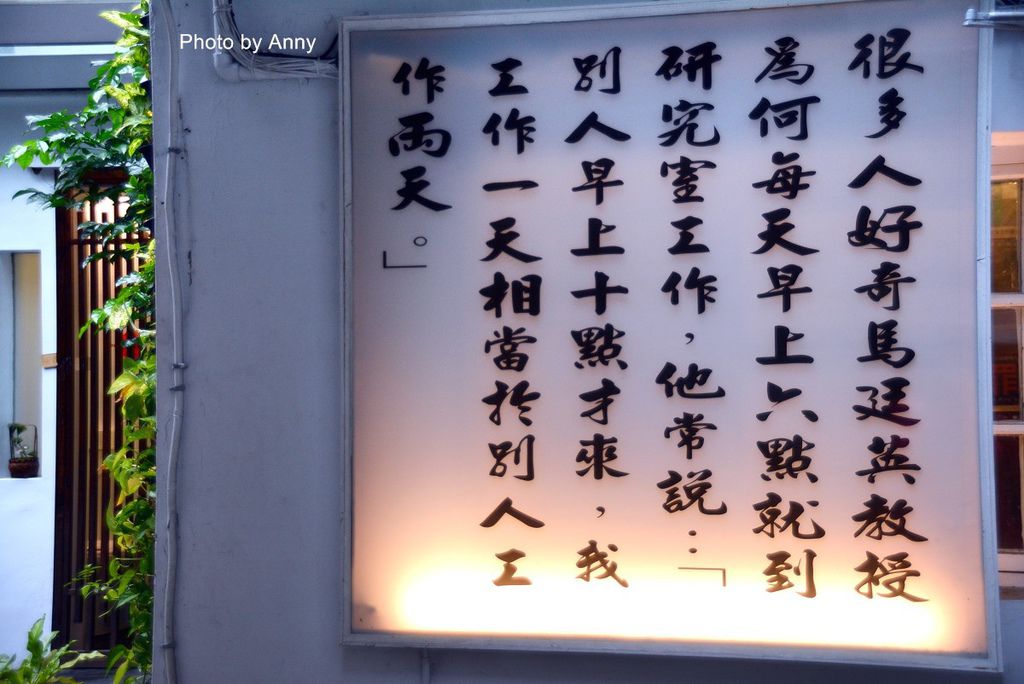 Photo by Anny
很多人好奇馬廷英教授
為何每天早上六點就到
研究室工作，他常說：「
別人早上十點才來，我
工作一天相當於別人工
作兩天。」